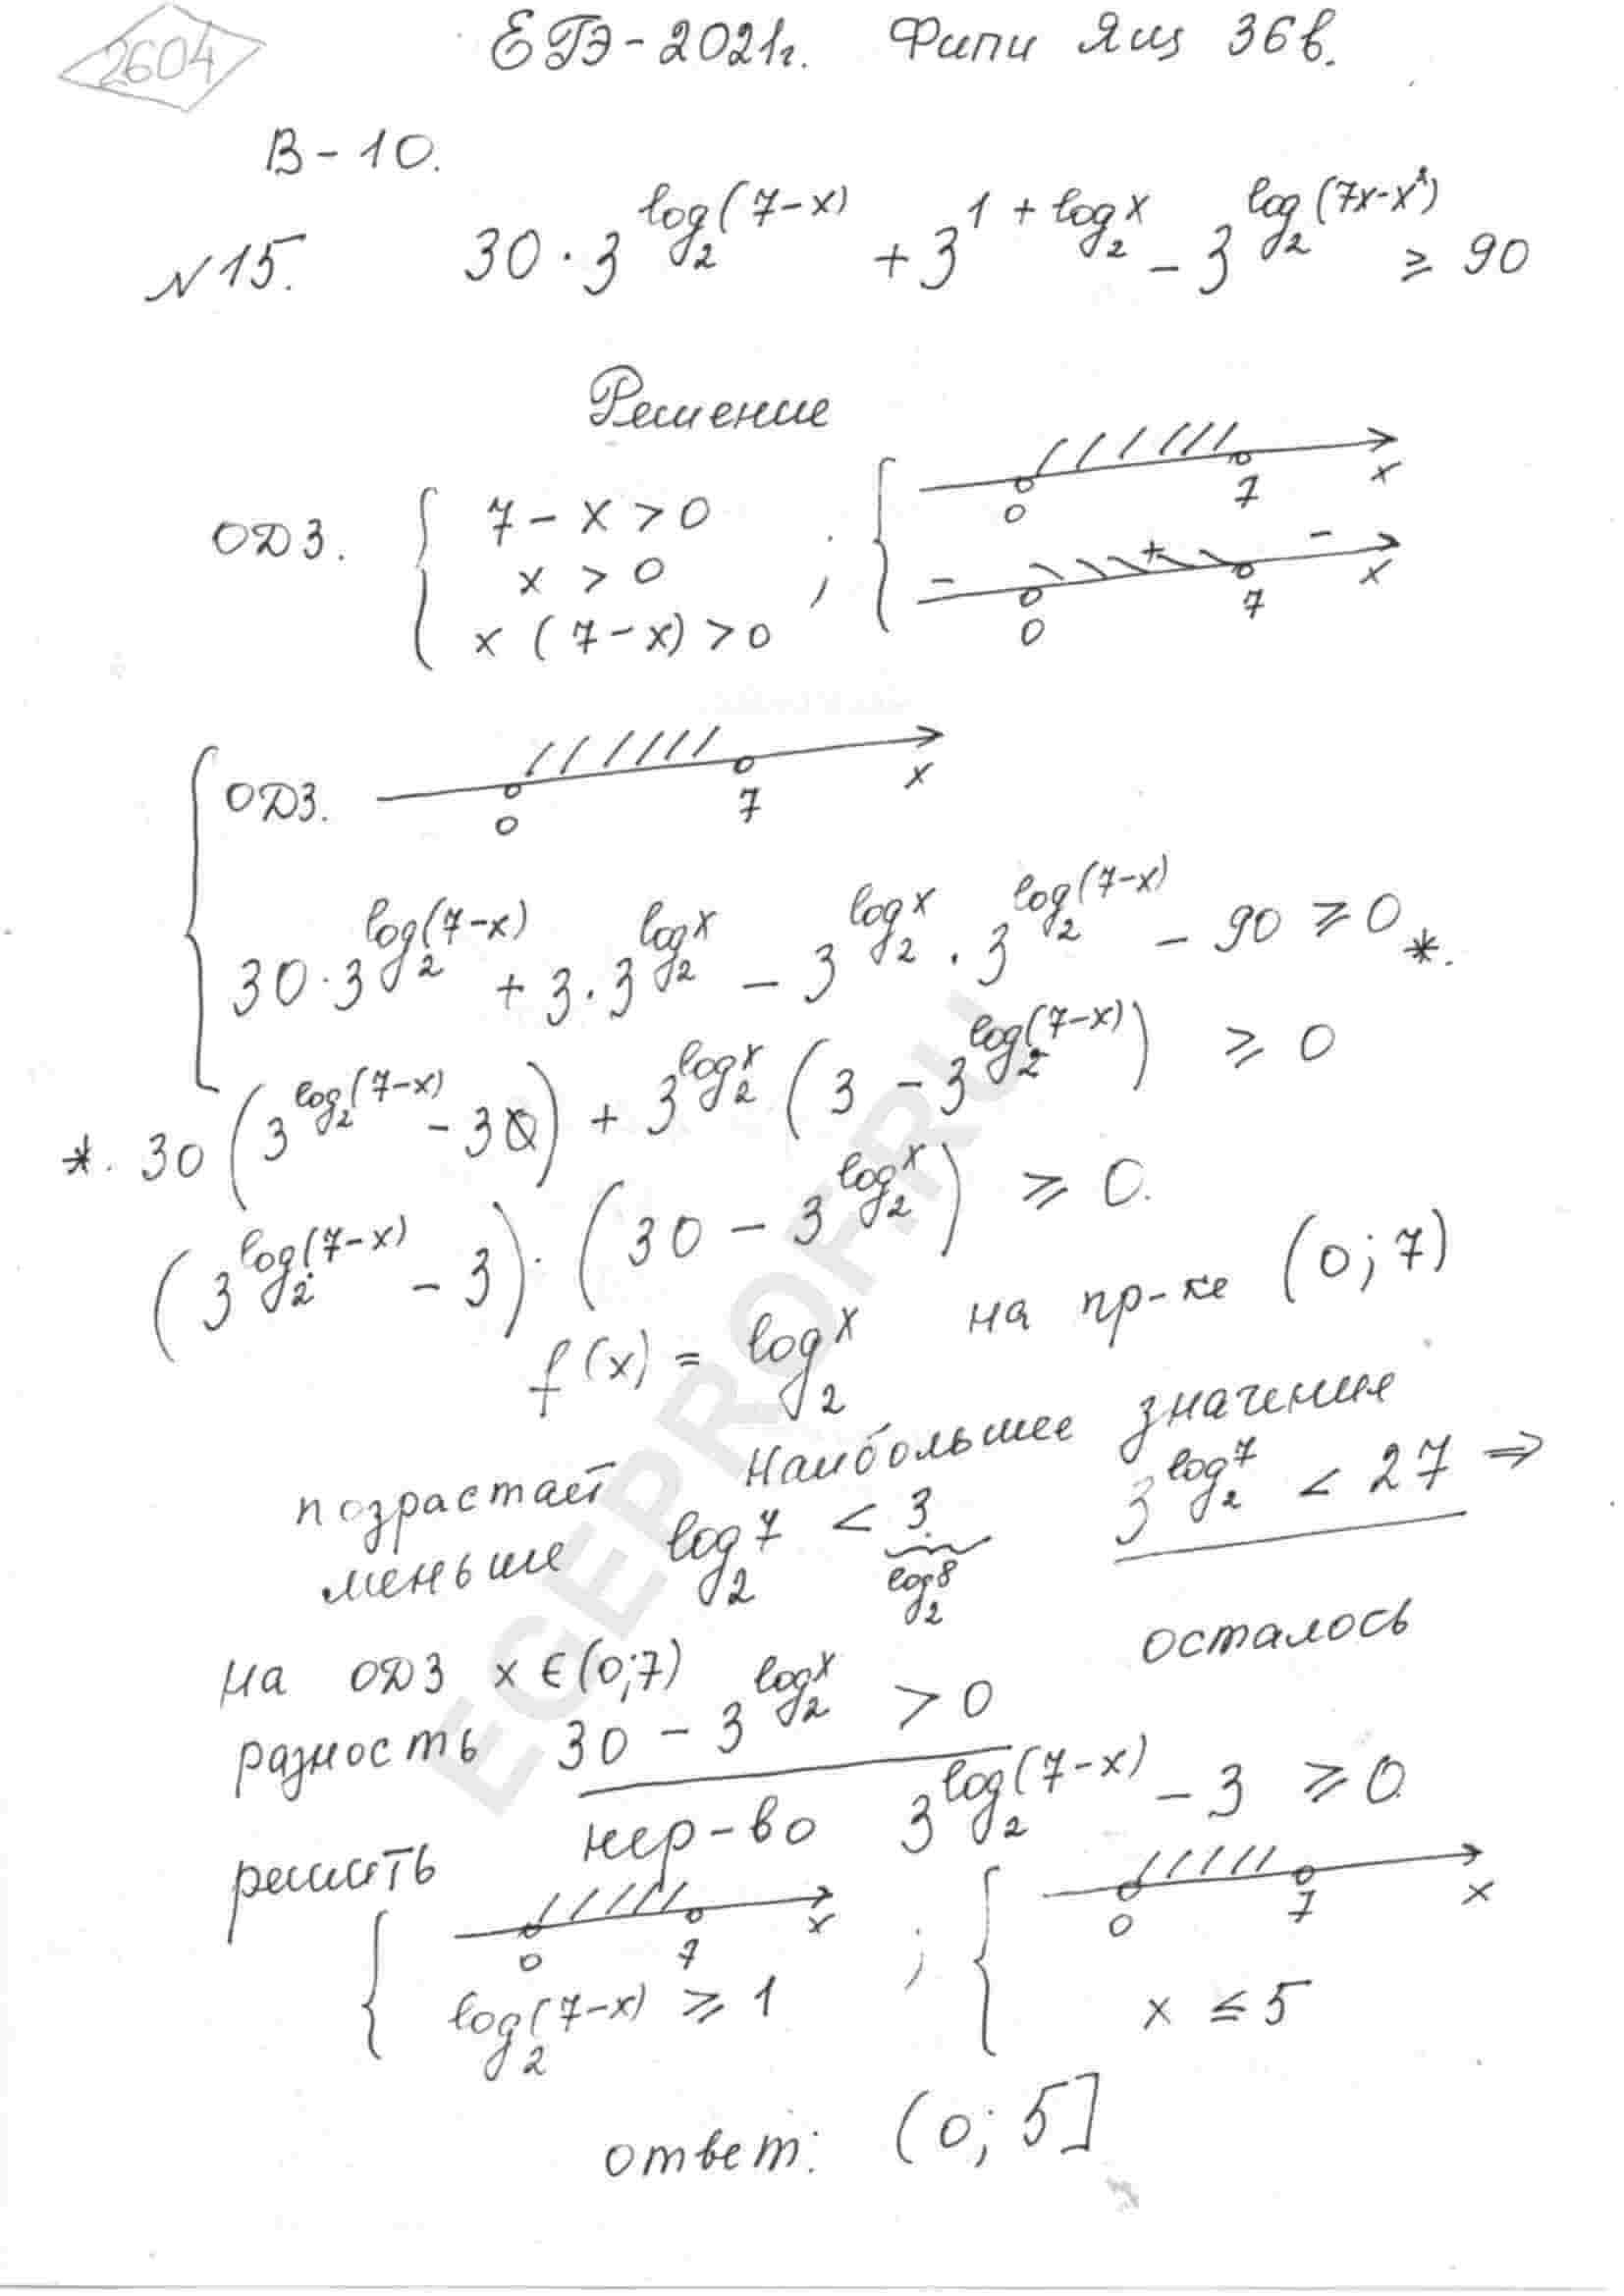 2604
ЕГЭ-2021г. Фипи Ящ 36в.
В-10.
№15. 30·3^{log_2(7-x)} + 3^{1+log_2 x} - 3^{log_2(7x-x²)} ≥ 90
Решение
ОДЗ. { 7-x>0 ; { 0 7 x
x > 0
x(7-x)>0 - 0 + 7 - x
{ ОДЗ. 0 7 x
30·3^{log_2(7-x)} + 3·3^{log_2 x} - 3^{log_2 x}·3^{log_2(7-x)} - 90 ≥ 0 *.
*. 30(3^{log_2(7-x)} - 3) + 3^{log_2 x}(3 - 3^{log_2(7-x)}) ≥ 0
(3^{log_2(7-x)} - 3)·(30 - 3^{log_2 x}) ≥ 0.
f(x) = log_2 x на пр-ке (0;7)
возрастает Наибольшее значение
меньше log_2 7 < 3 3^{log_2 7} < 27 ⇒
log_2 8
на ОДЗ x∈(0;7) осталось
разность 30 - 3^{log_2 x} > 0
решить нер-во 3^{log_2(7-x)} - 3 ≥ 0
{ 0 7 x ; { 0 7 x
log_2(7-x) ≥ 1 x ≤ 5
ответ: (0; 5]
EGEPROF.RU